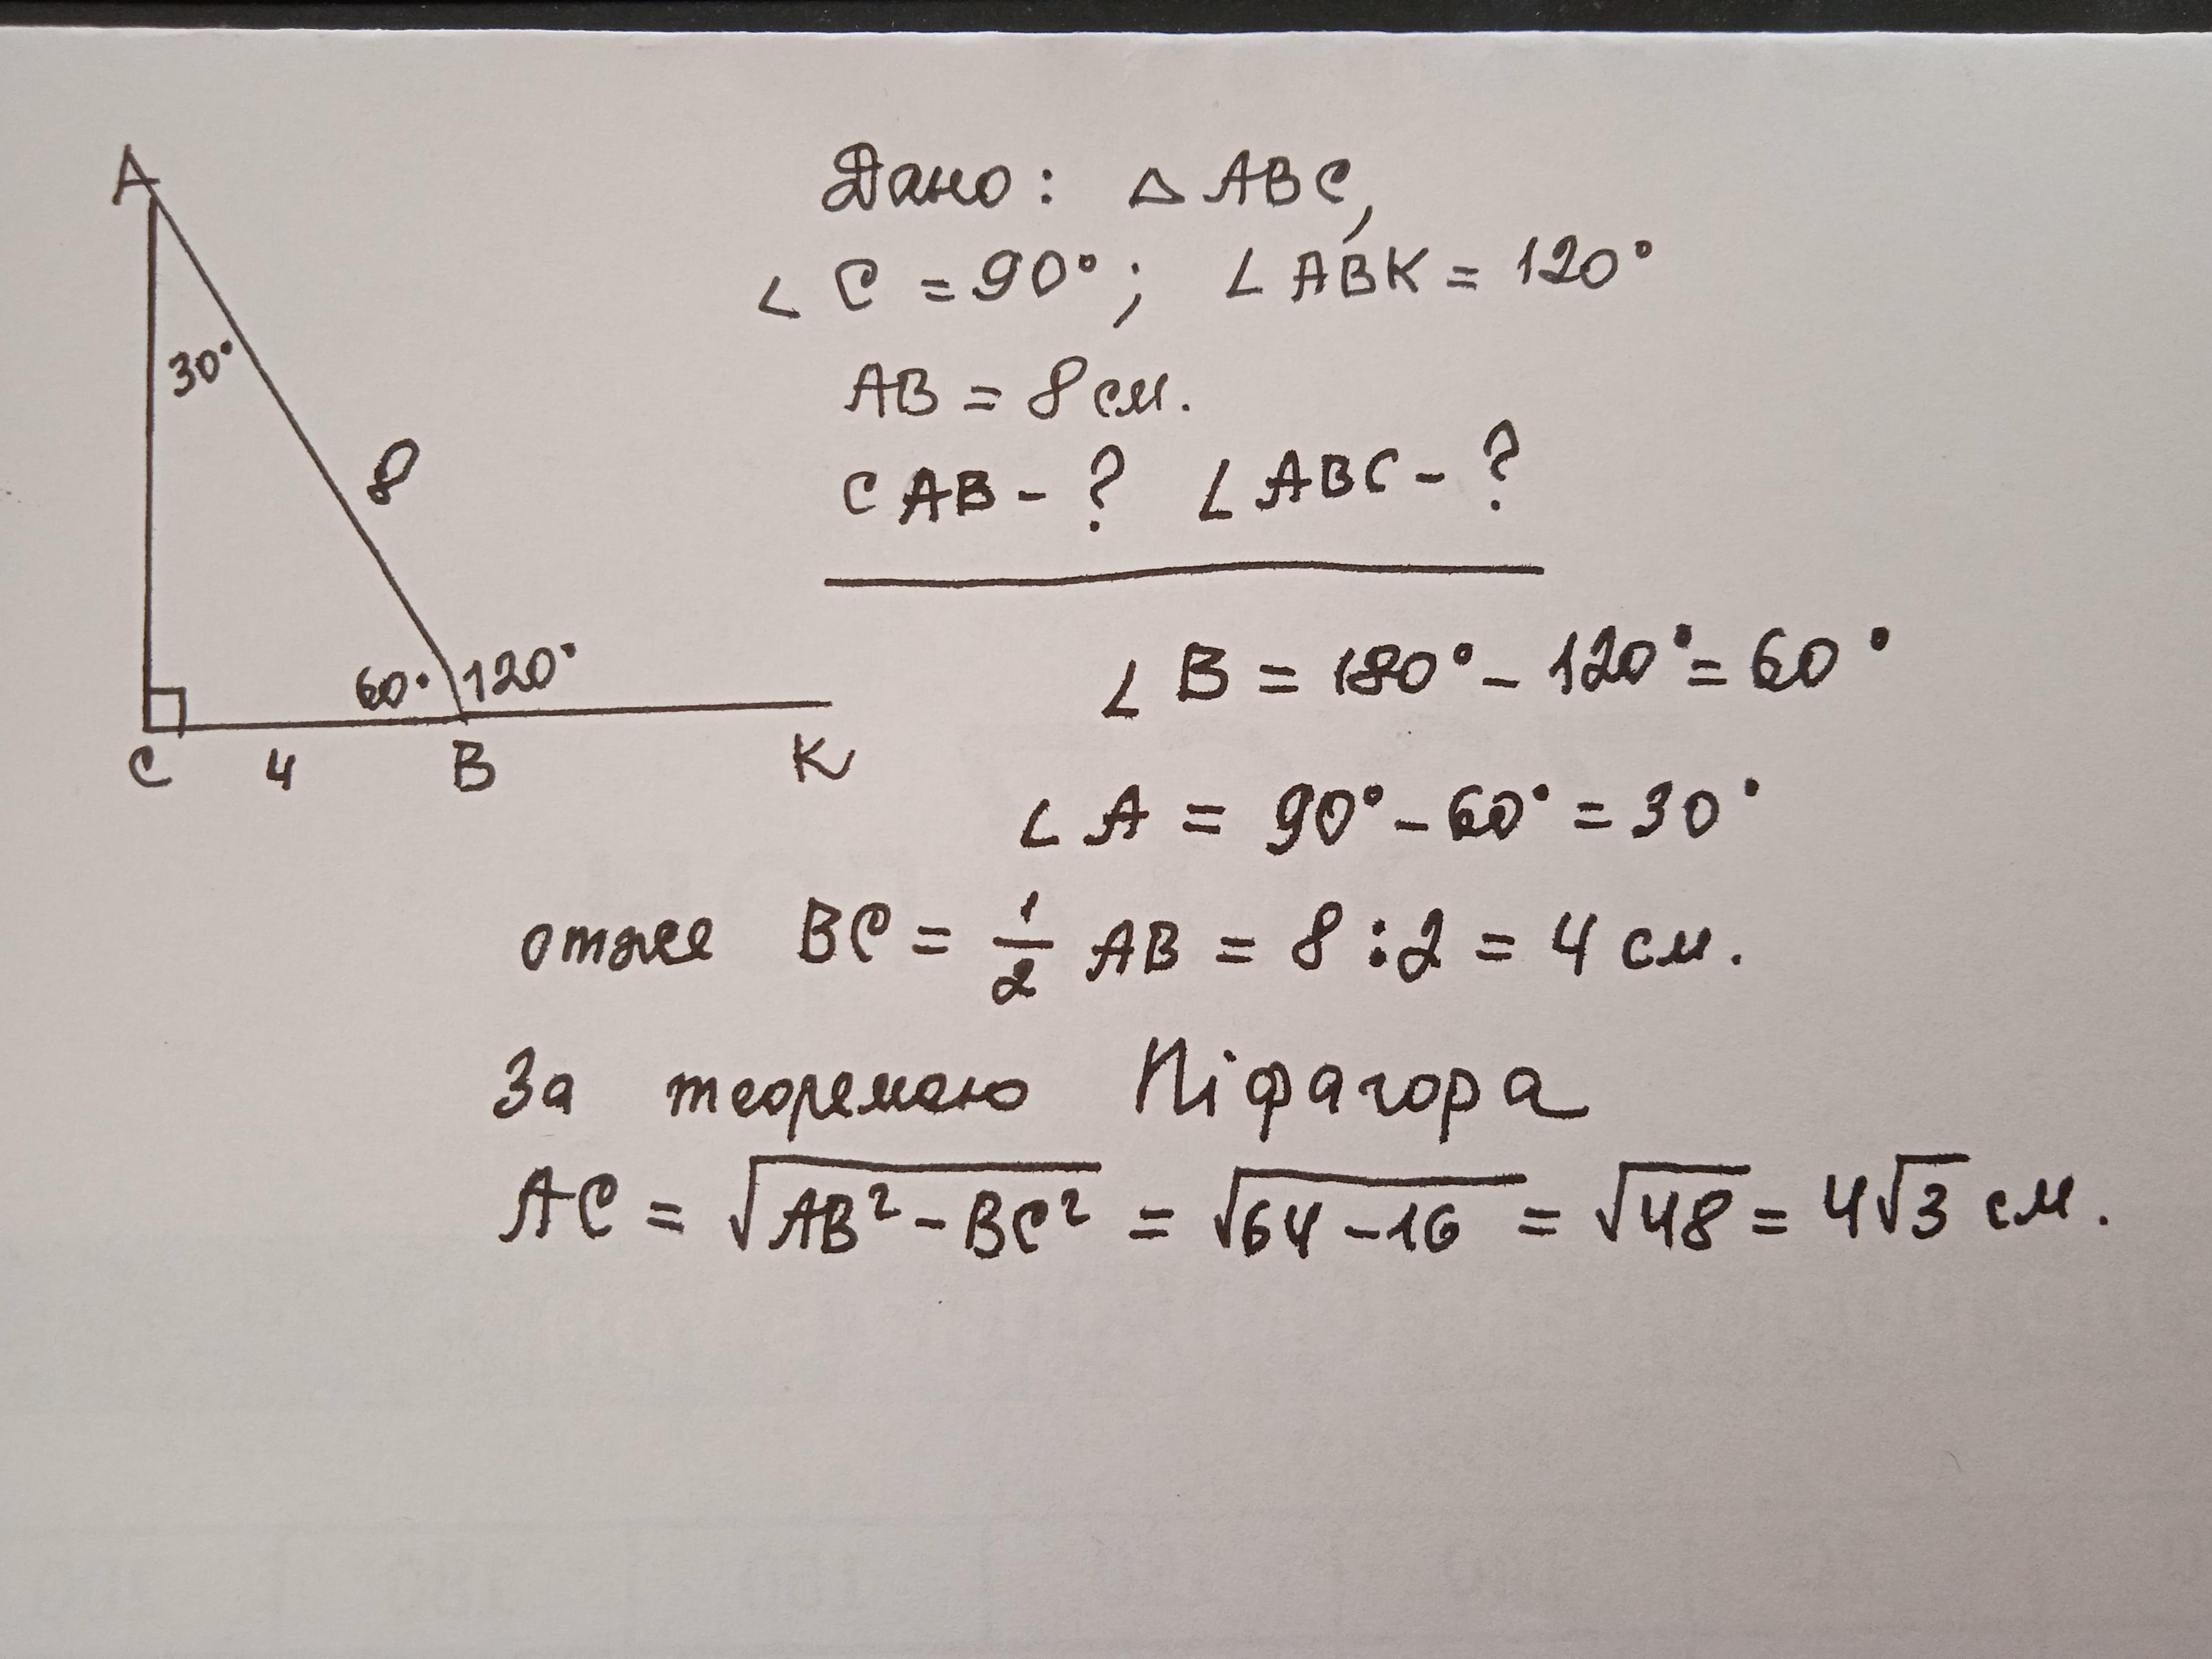 A
30°
8
60° 120°
C 4 B K
Дано: △ ABC,
∠ C = 90°; ∠ ABK = 120°
AB = 8 см.
CAB - ? ∠ ABC - ?
∠ B = 180° - 120° = 60°
∠ A = 90° - 60° = 30°
отже BC = 1/2 AB = 8 : 2 = 4 см.
За теоремою Піфагора
AC = √(AB² - BC²) = √(64 - 16) = √48 = 4√3 см.